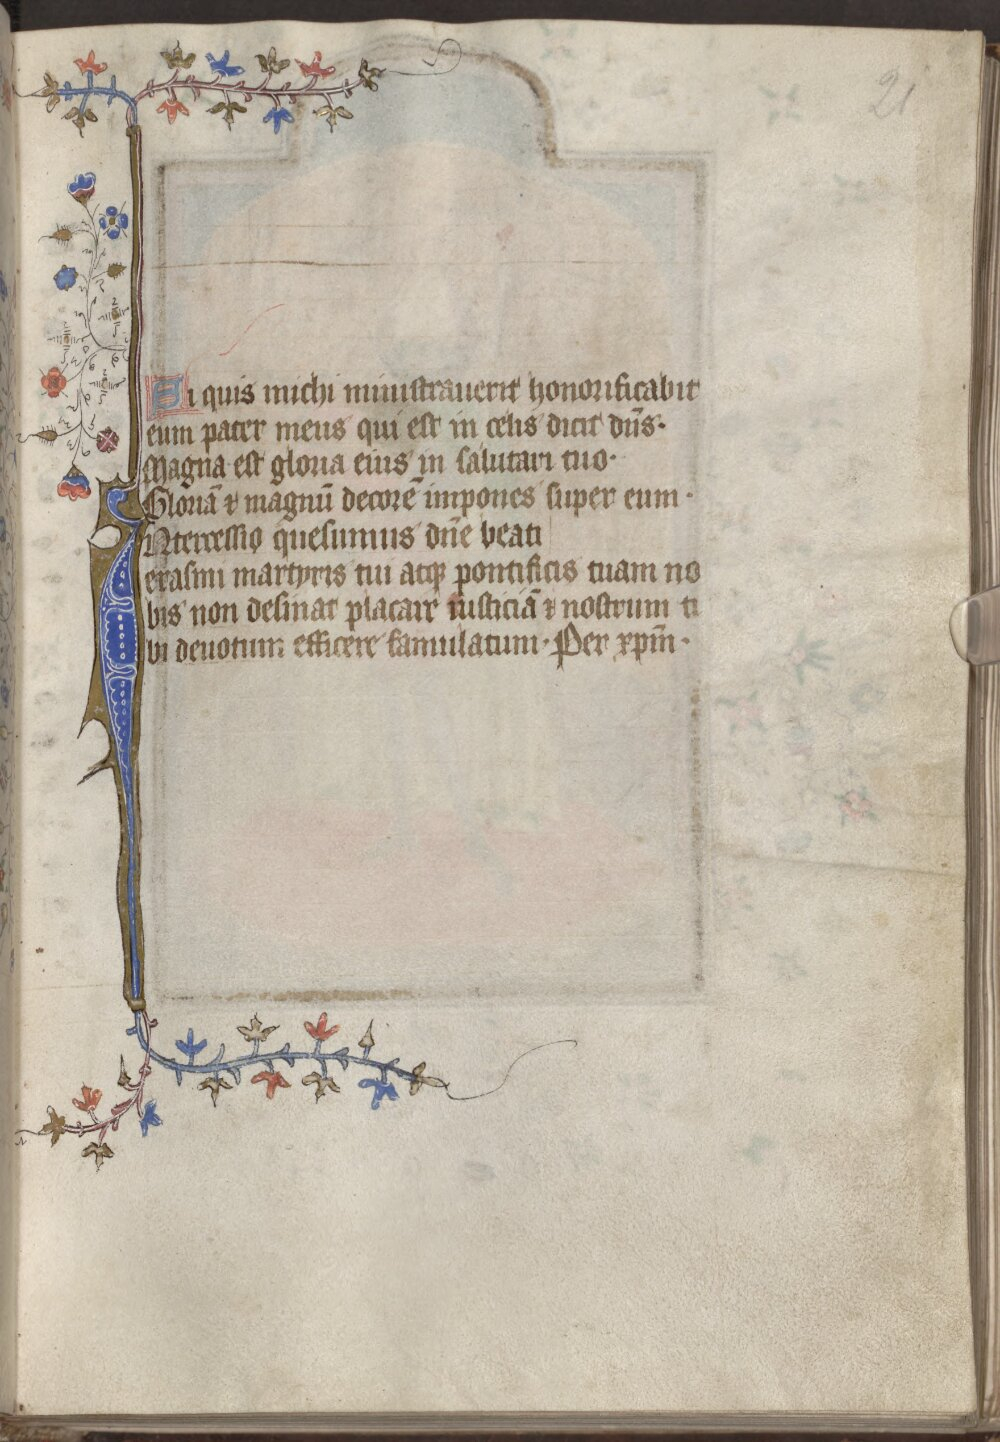 21
Si quis michi ministrauerit honorificabit
eum pater meus qui est in celis dicit dn̄s·
Magna est gloria eius in salutari tuo·
Gloriā ⁊ magnū decorē impones super eum·
Intercessio quesumus dn̄e beati
erasmi martyris tui atqꝫ pontificis tuam no
bis non desinat placare iusticiā ⁊ nostrum ti
bi deuotum efficere famulatum· Per xp̄m·